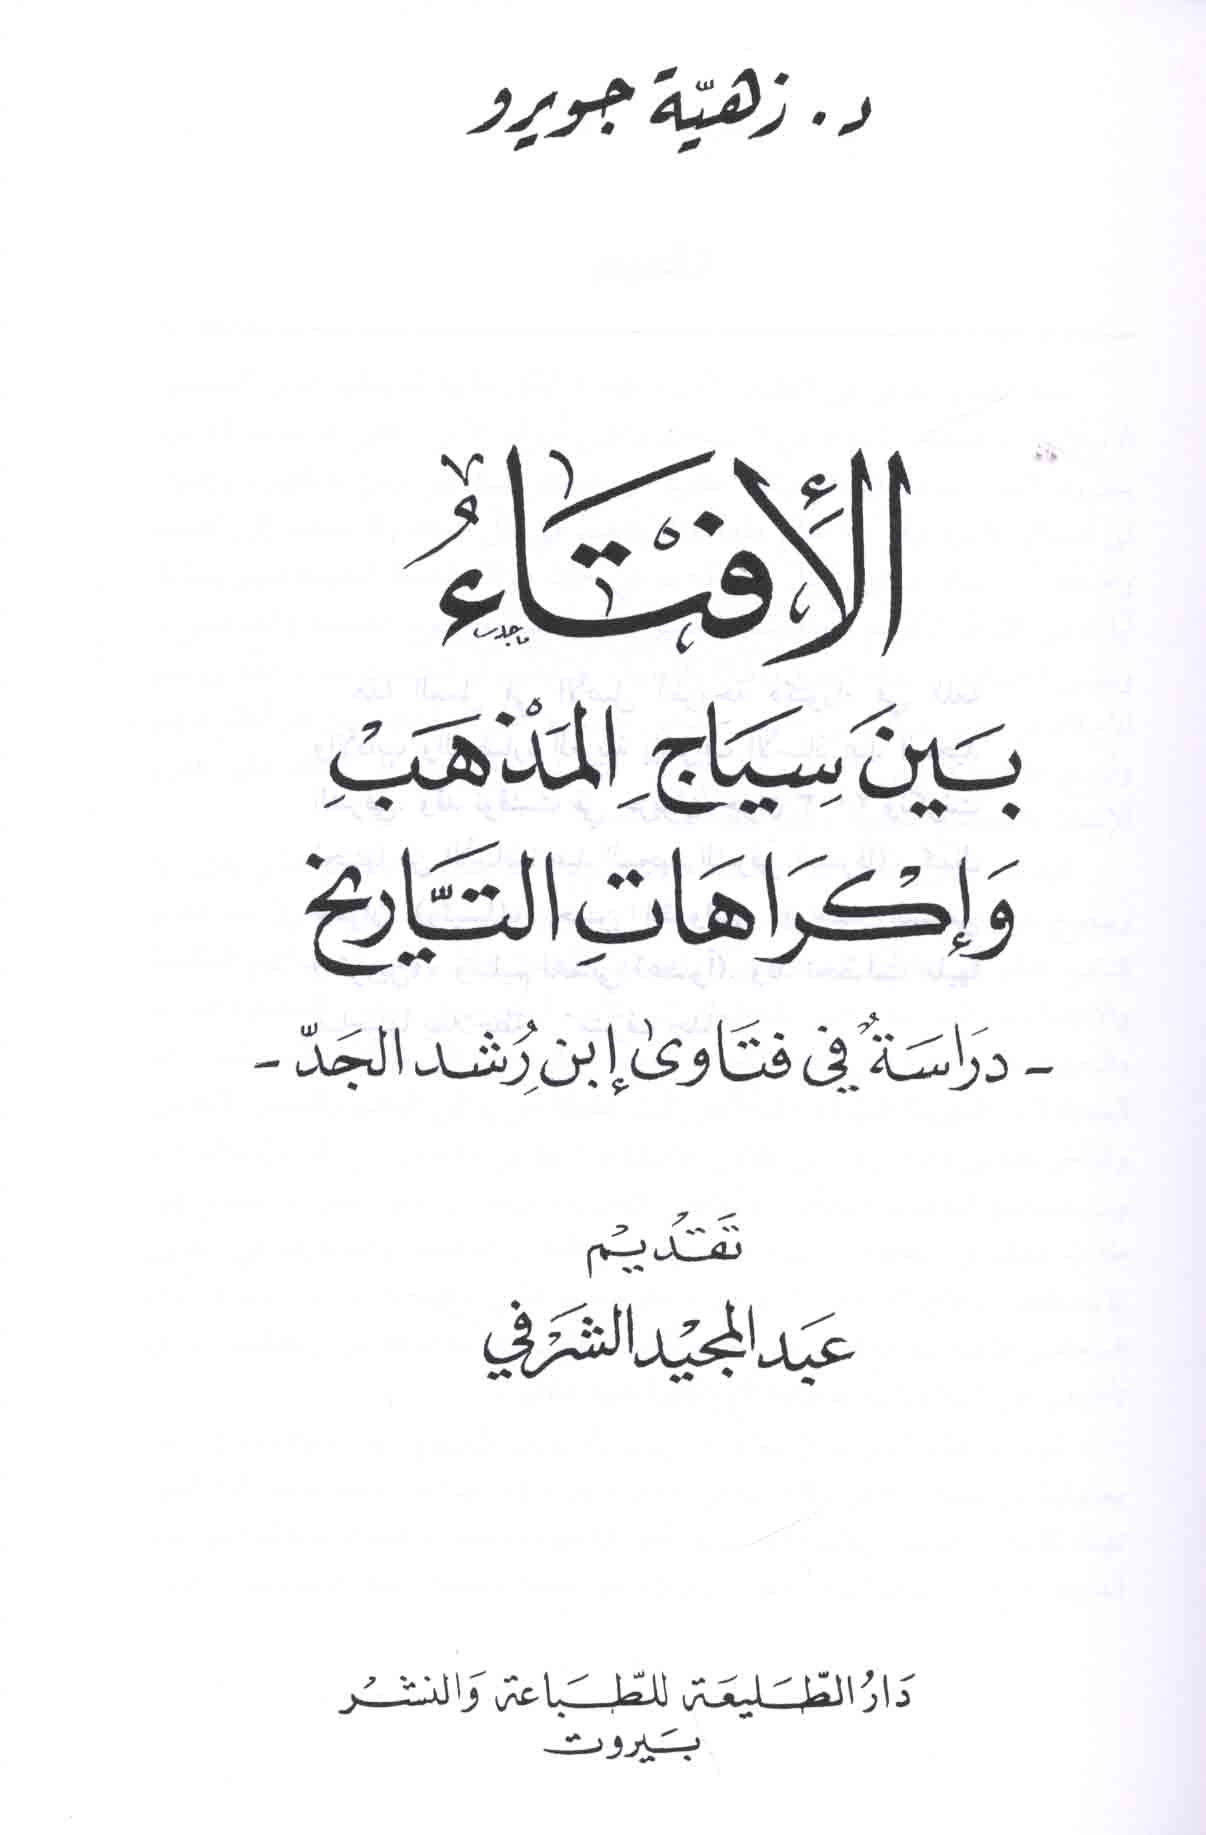 د. زهيّة جويرو
الإفتاء
بين سياج المذهب
وإكراهات التّاريخ
- دراسة في فتاوى إبن رشد الجدّ -
تقديم
عبد المجيد الشرفي
دار الطّليعة للطّباعة والنشر
بيروت